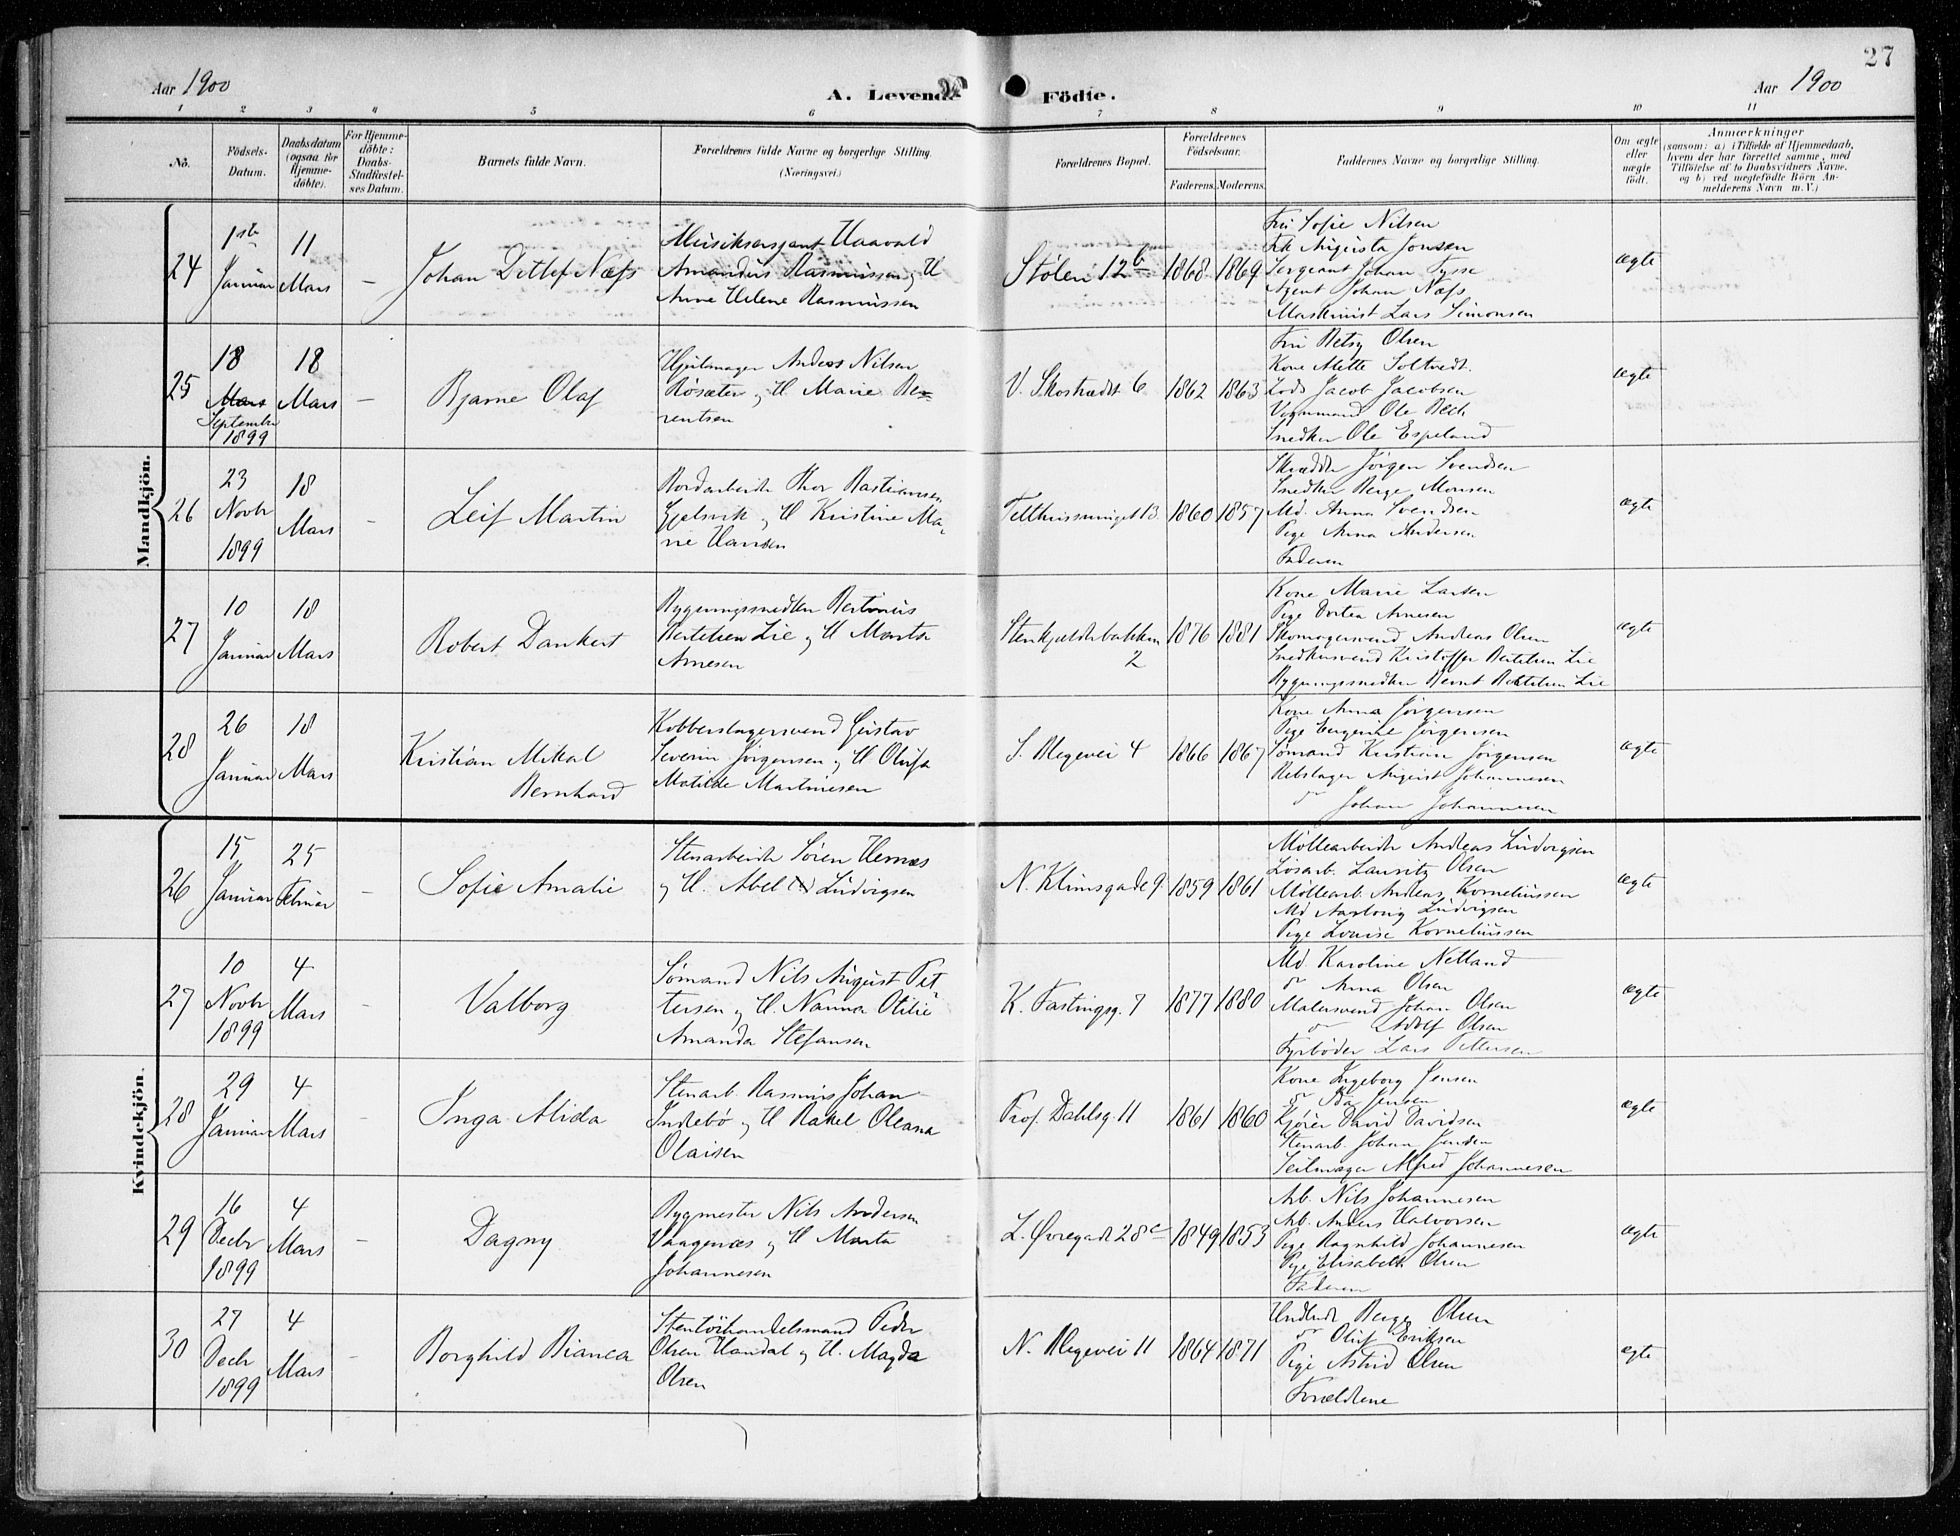 27
Aar 1900
A. Levende Födte.
Aar 1900
1 2 3 4 5 6 7 8 9 10 11
No.
Födsels-Datum.
Daabsdatum (ogsaa for Hjemme-döbte).
For Hjemme-döbte: Daabs-Stadfæstel-ses Datum.
Barnets fulde Navn.
Forældrenes fulde Navne og borgerlige Stilling.
(Næringsvei.)
Forældrenes Bopæl.
Forældrenes Födselsaar.
Faderens. Moderens.
Faddernes Navne og borgerlige Stilling.
Om ægte eller uægte födt.
Anmærkninger
(saasom: a) i Tilfælde af Hjemmedaab,
hvem der har forrettet samme, med
Tilföielse af to Daabsvidners Navne.
og b) ved uægtefödte Börn An-
melderens Navn m. V.)
Mandkjön.
24
1ste Januar
11 Mars
–
Johan Ditlef Næss
Musiksersjant Haavald
Amandus Rasmussen og H
Anne Helene Rasmussen
Stølen 12b
1868 1869
Fru Sofie Nilsen
Frk Augusta Jonsen
Sergeant Johan Tysse
Agent Johan Næss
Maskinist Lars Simonsen
ægte
25
18 Mars September 1899
18 Mars
–
Bjarne Olaf
Hjulmager Anders Nilsen
Røsæter og H Marie Be-
rentsen
V. Skostrædt 6
1862 1863
Fru Betsy Olsen
Kone Mette Soltvedt.
Lods Jacob Jacobsen
Vognmand Ole Bech
Snedker Ole Espeland
ægte
26
23 Novbr 1899
18 Mars
–
Leif Martin
Bordarbeidr Thor Bastiansen
Gjelsvik og H Kristine Ma-
rie Hansen
13
1860 1857
Skrædder Jørgen Svendsen
Snedker Berge Monsen
Md. Anna Svendsen
Pige Anna Andersen
Faderen
ægte
27
10 Januar
18 Mars
Robert Dankert
Bygningssnedker Bertinius
Bertelsen Lie og H Marta
Arnesen
Stenkjelderbakken
2
1876 1881
Kone Marie Larsen
Pige Dortea Arnesen
Skomagersvend Andreas Olsen
Snedkersvend Kristoffer Bertelsen Lie
Bygningssnedker Bernt Bertelsen Lie
ægte
28
26 Januar
18 Mars
Kristian Mikal
Bernhard
Kobberslagersvend Gustav
Severin Jørgensen og H Olufa
Matilde Martinesen
S. Blegevei 4
1866 1867
Kone Anna Jörgensen
Pige Eugenie Jörgensen
Sømand Kristian Jörgensen
Rebslager August Johannesen
do Johan Johannesen
ægte
Kvindekjön.
26
15 Januar
25 Februar
–
Sofie Amalie
Stenarbeidr Sören Hernes
og H. Abel Ludvigsen
N. Klimsgade 9
1859 1861
Möllearbeidr Andreas Ludvigsen
Løsarb. Lauritz Olsen
Möllearb. Andreas Korneliussen
Md Aasborg Ludvigsen
Pige Lovise Korneliussen
ægte
27
10 Novbr 1899
4 Mars
–
Valborg
Sømand Nils August Pet
tersen og H. Nanna Otilie
Amanda Stefansen
K. Fastingsg. 7
1877 1880
Md. Karoline Netland
do Anna Olsen
Malersvend Johan Olsen
do Adolf Olsen
Fyrböder Lars Pettersen
ægte
28
29 Januar
4 Mars
–
Inga Alida
Stenarb. Rasmus Johan
Indebö og H Rakel Oleana
Olaisen
Prof. Dahlsg. 11
1861 1860
Kone Ingeborg Jensen
do Ida Jensen
Kjörer David Davidsen
Stenarb. Johan Jensen
Seilmager Alfred Johannesen
ægte
29
16 Decbr 1899
4 Mars
–
Dagny
Bygmester Nils Andersen
Vaagenæs og H Marta
Johannesen
L. Øvregade 28c
1849 1853
Arb. Nils Johannesen
Arb. Anders Halvorsen
Pige Ragnhild Johannesen
Pige Elisabeth Olsen
Faderen
ægte
30
27 Decbr 1899
4 Mars
–
Borghild Bianca
Stentöihandelsmand Peder
Olsen Handal og H. Magda
Olsen
N. Blegevei 11
1864 1871
Handlende Berge Olsen
do Oluf Eriksen
Pige Astrid Olsen
Forældrene
ægte